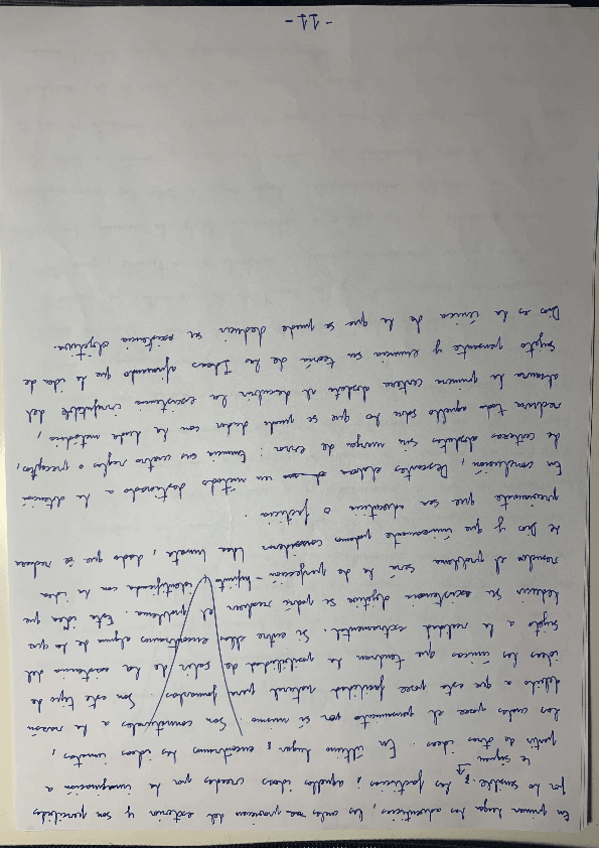 En primer lugar las adventicias, las cuales provienen del exterior y son percibidas
por lo sensible; las facticias; aquellas ideas creadas por la imaginación a
le sigue
partir de otras ideas. En último lugar; encontramos las ideas innatas,
las cuales posee el pensamiento por si mismo. Son connaturales a la razón
debido a que este posee facilidad natural para formarlas. Son este tipo de
ideas las únicas que tendrían la posibilidad de salir de la existencia del
sujeto a la realidad extramental. Si entre ellas encontramos alguna de la que
deducir su existencia objetiva se podrá resolver el problema. Esta idea que
resuelve el problema será la de perfección-infinito identificada con la idea
de Dios y que únicamente podemos considerar idea innata, dado que se rechaza
previamente que sea adventicia o facticia.
En conclusión, Descartes elabora un método destinado a la obtención
de certezas absolutas sin margen de error: Enuncia sus cuatro reglas o preceptos,
rechaza todo aquello sobre lo que se puede dudar con la duda metódica,
alcanza la primera certeza absoluta al descubrir la existencia irrefutable del
sujeto pensante y enuncia su teoría de las Ideas afirmando que la idea de
Dios es la única de la que se puede deducir su existencia objetiva.
-11-